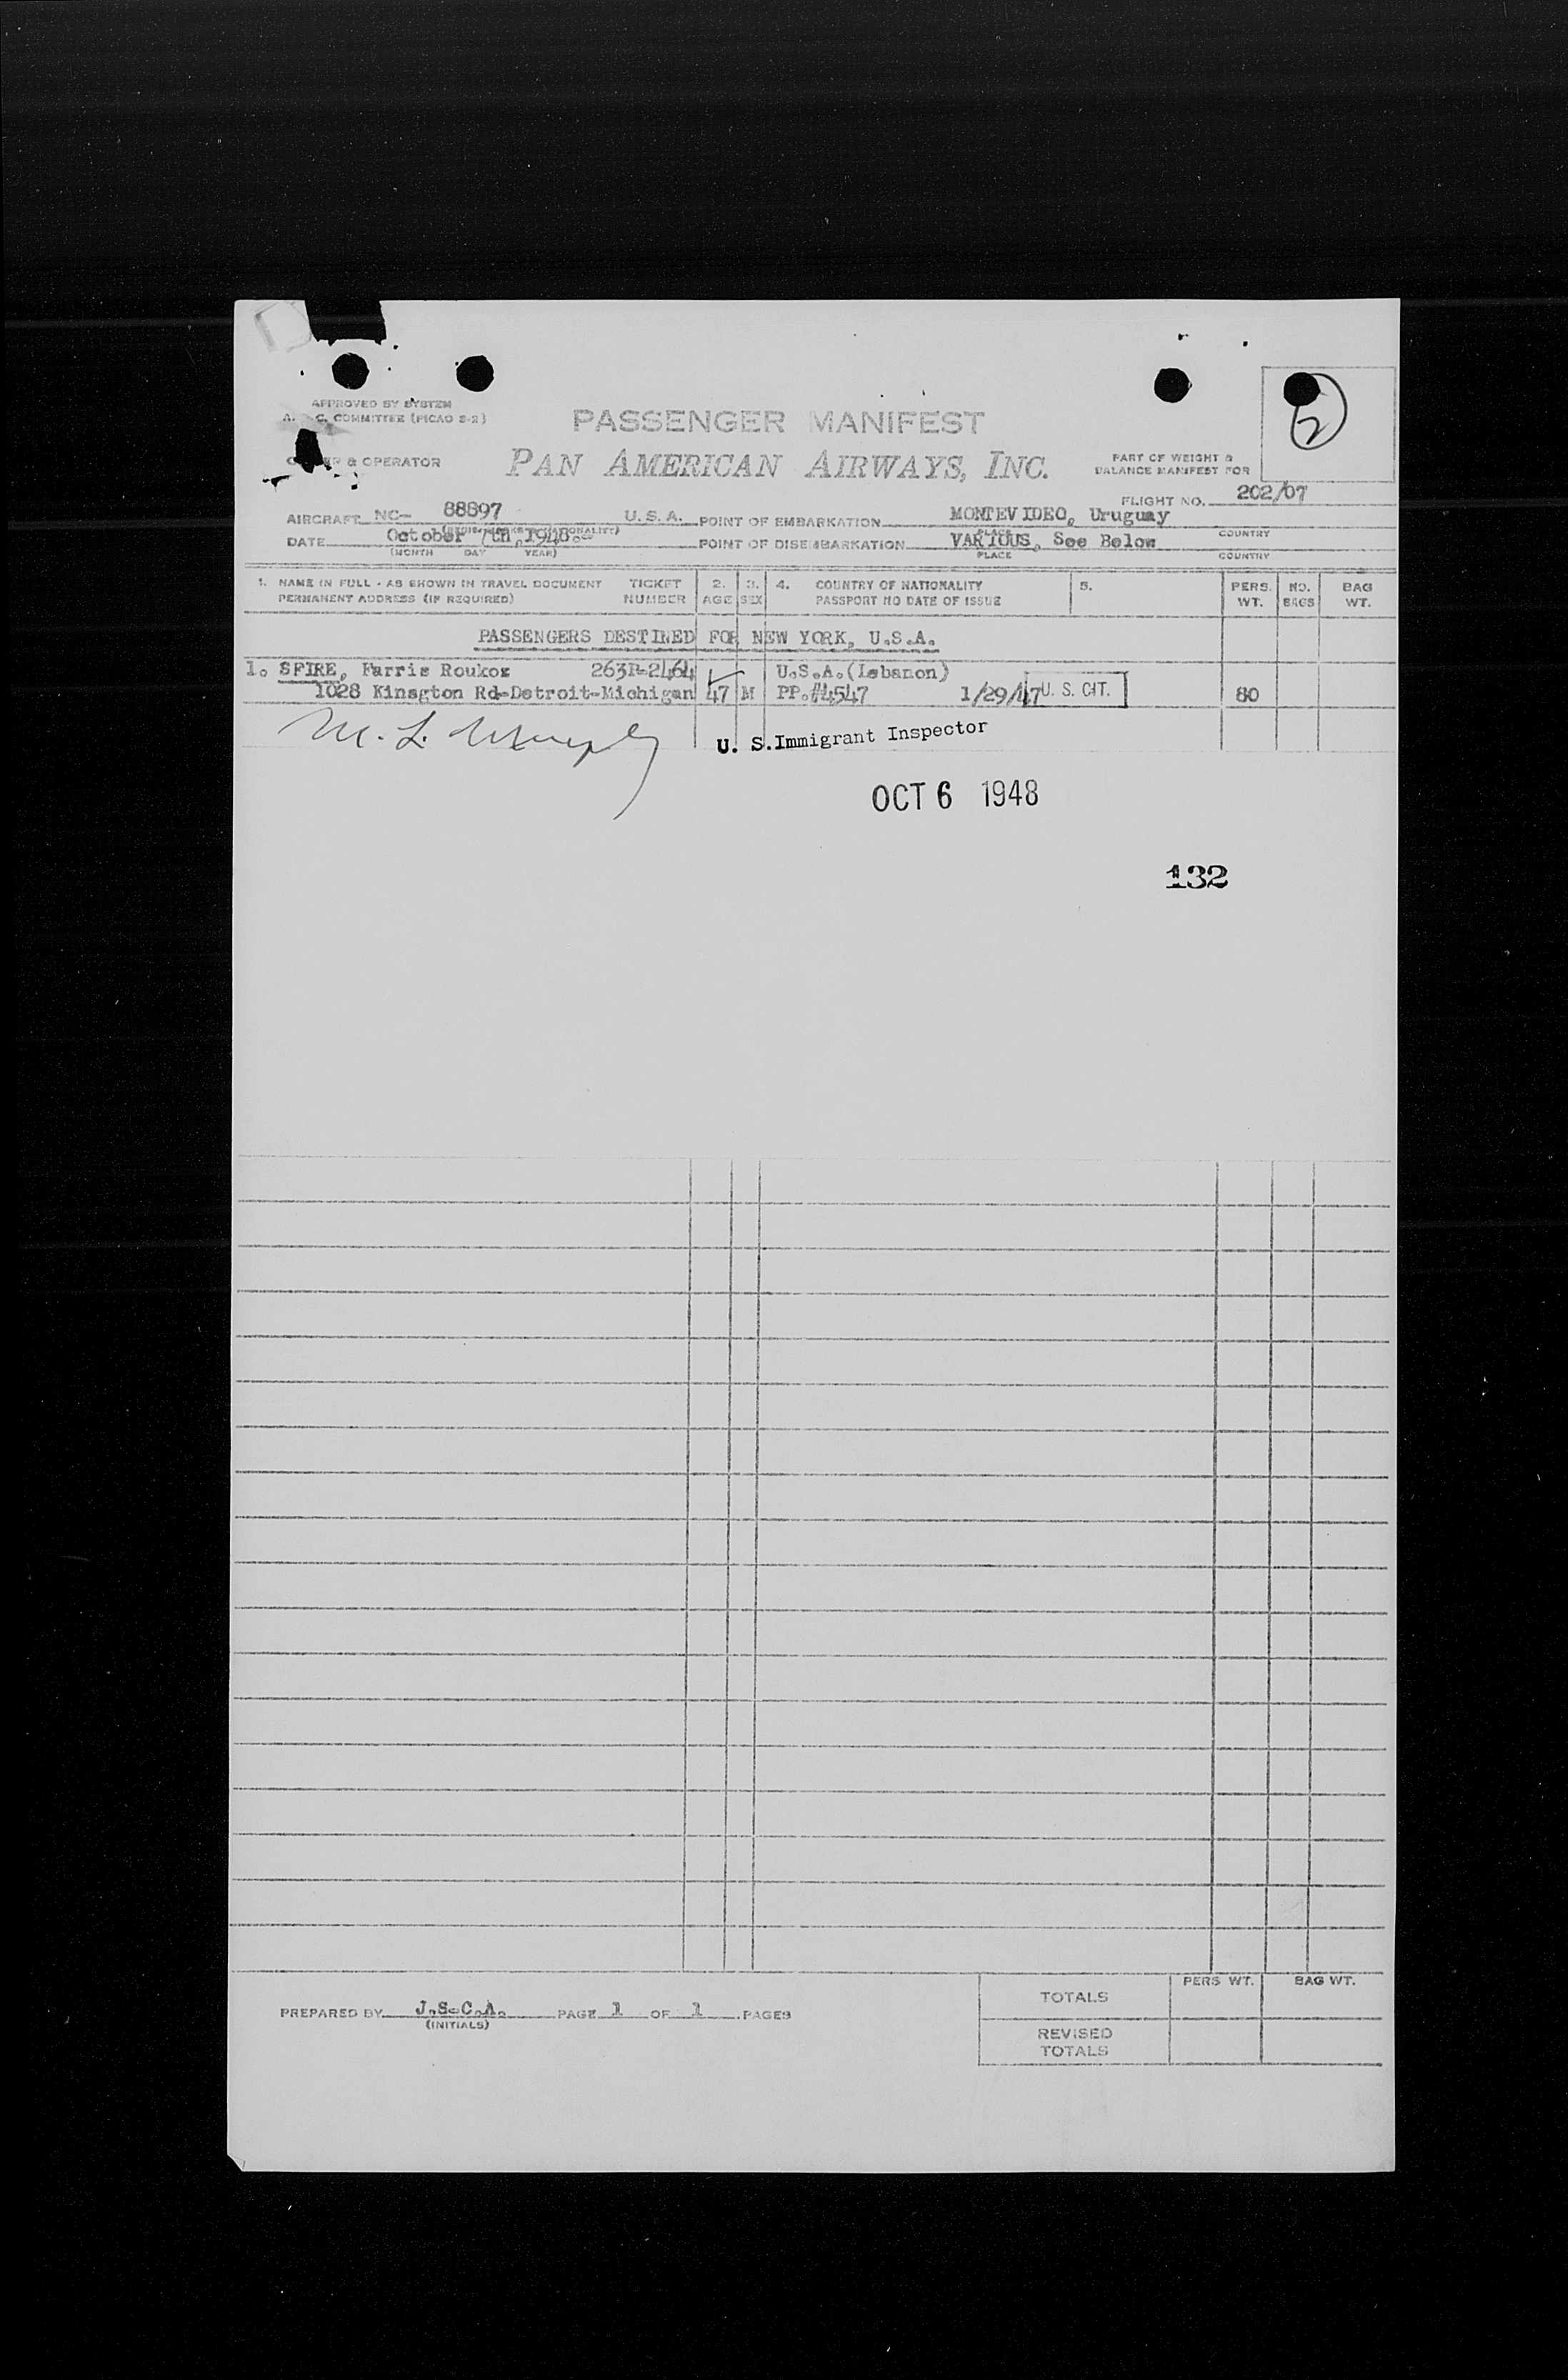 APPROVED BY SYSTEM
A. C. COMMITTEE (PICAO 2-2)
PASSENGER MANIFEST
2
& OPERATOR
PAN AMERICAN AIRWAYS, INC.
PART OF WEIGHT &
BALANCE MANIFEST FOR
FLIGHT NO. 202/07
AIRCRAFT NC- 88897 U.S.A. POINT OF EMBARKATION MONTEVIDEO, Uruguay
PLACE COUNTRY
DATE October 7th, 1948 POINT OF DISEMBARKATION VARIOUS, See Below
(MONTH DAY YEAR) PLACE COUNTRY
1. NAME IN FULL - AS SHOWN IN TRAVEL DOCUMENT TICKET 2. 3. 4. COUNTRY OF NATIONALITY 5. PERS. NO. BAG
PERMANENT ADDRESS (IF REQUIRED) NUMBER AGE SEX PASSPORT NO DATE OF ISSUE WT. BAGS WT.
PASSENGERS DESTINED FOR NEW YORK, U.S.A.
1. SFIRE, Farris Roukoz 263P-2464 U.S.A.(Lebanon)
1028 Kinsgton Rd-Detroit-Michigan 47 M PP.#4547 1/29/47 U. S. CIT. 80
M. L. Murphy U. S. Immigrant Inspector
OCT 6 1948
132
PERS WT. BAG WT.
TOTALS
PREPARED BY J.S.C.A. PAGE 1 OF 1 PAGES
(INITIALS)
REVISED
TOTALS